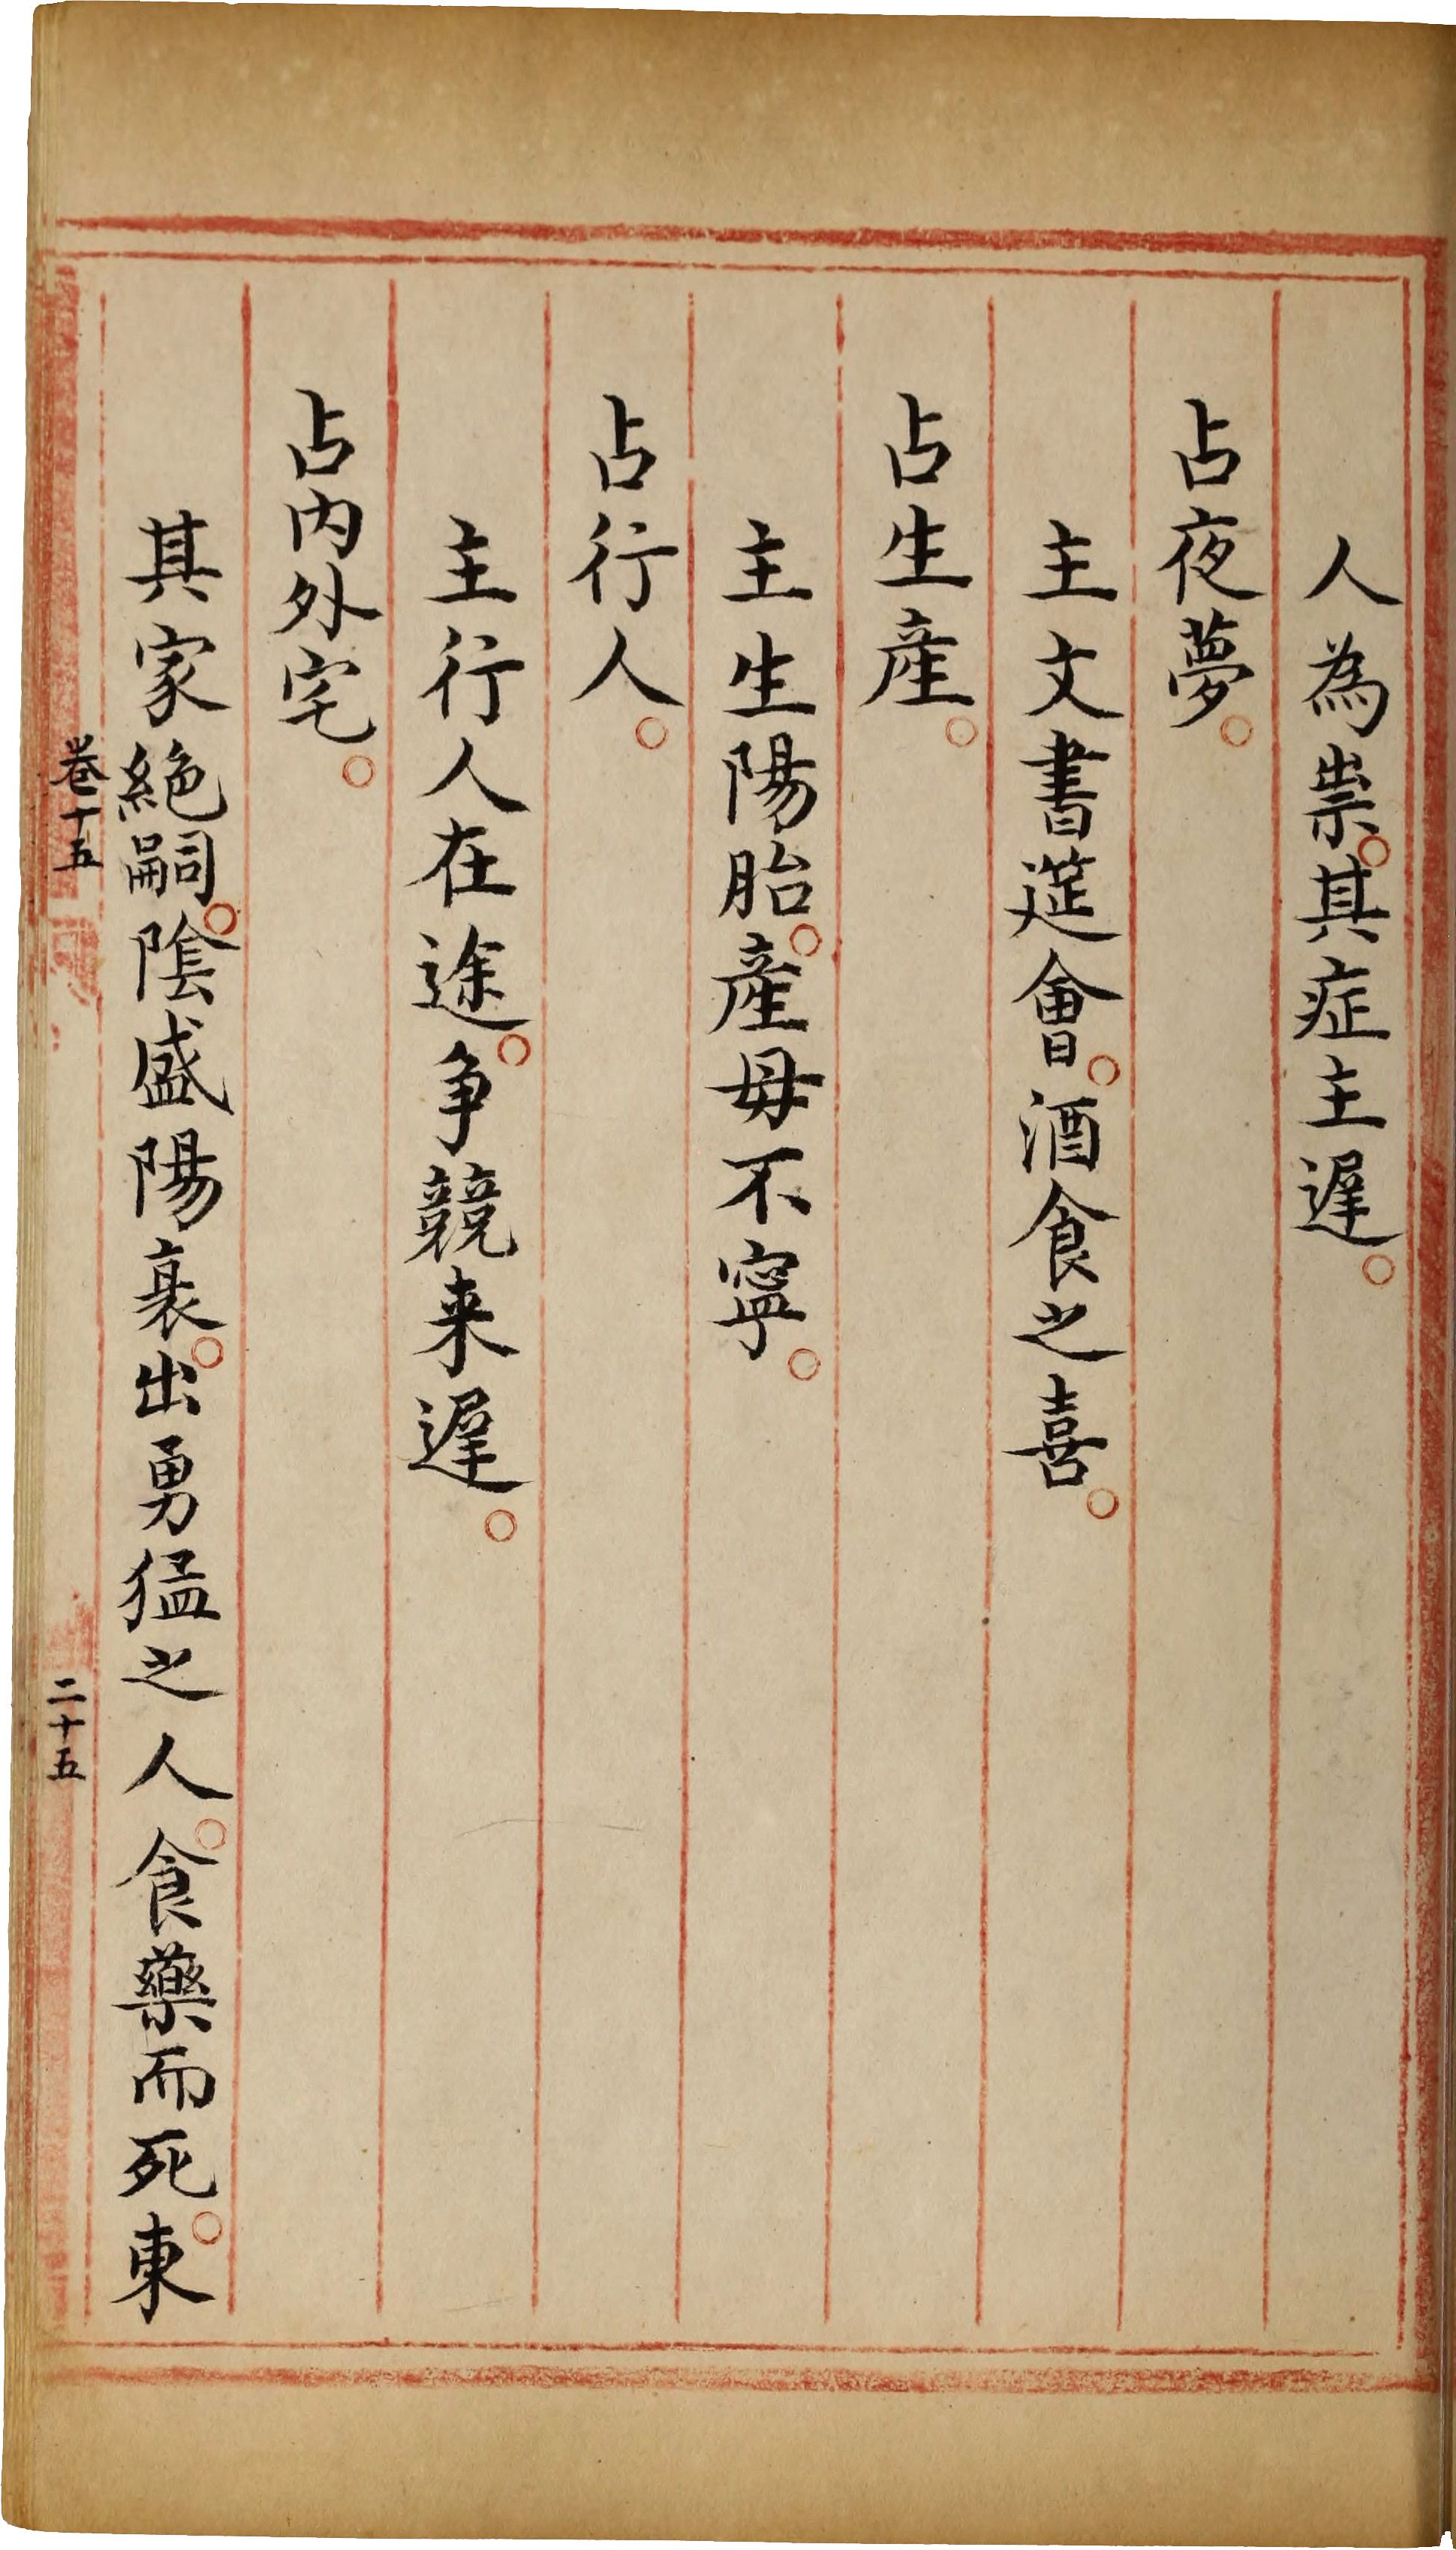 人為祟。其症主遲。
占夜夢。
主文書筵會。酒食之喜。
占生產。
主生陽胎。產母不寧。
占行人。
主行人在途。爭競来遲。
占內外宅。
其家絕嗣。陰盛陽衰。出勇猛之人。食藥而死。東
卷十五
二十五